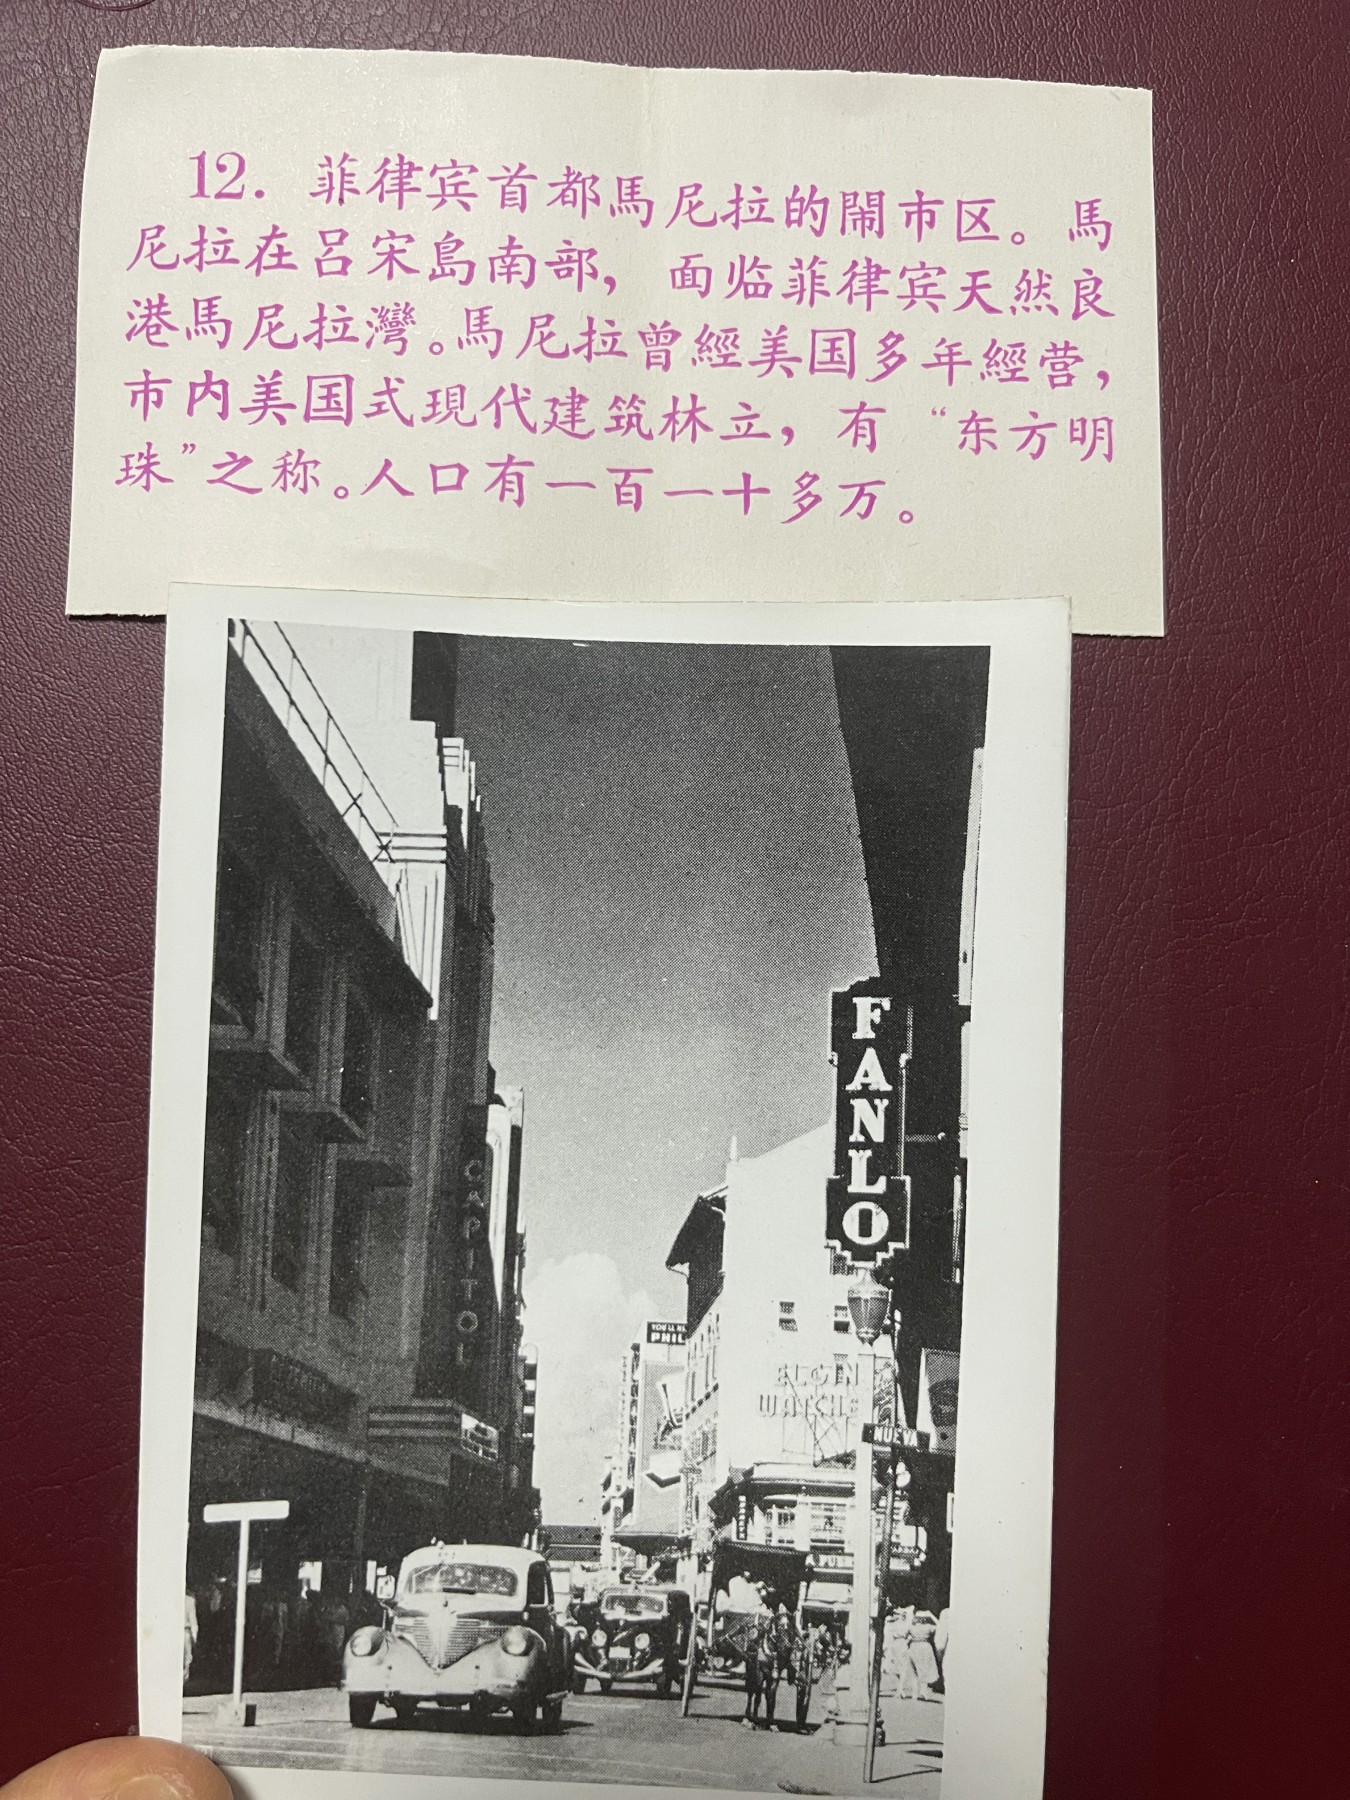 12. 菲律宾首都馬尼拉的鬧市区。馬
尼拉在吕宋島南部，面临菲律宾天然良
港馬尼拉灣。馬尼拉曾經美国多年經营，
市内美国式現代建筑林立，有“东方明
珠”之称。人口有一百一十多万。
CAPITOL
FANLO
PHIL
ELGIN
WATCHE
NUEVA